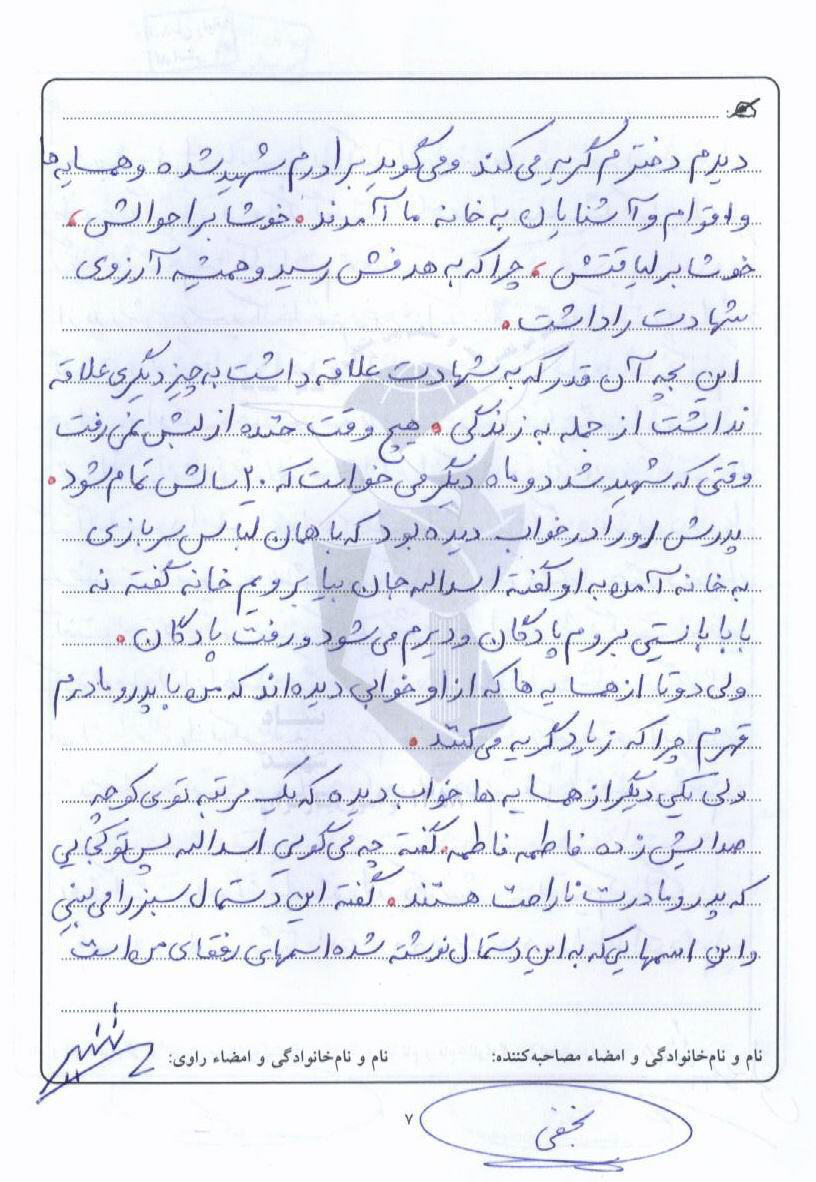 دیدم دخترم گریه می‌کند و می‌گوید برادرم شهید شده و همسایه‌ها
و اقوام و آشنایان به خانه ما آمدند. خوشا بر احوالش،
خوشا بر لیاقتش، چرا که به هدفش رسید و همیشه آرزوی
شهادت را داشت.
این بچه آن قدر که به شهادت علاقه داشت به چیز دیگری علاقه
نداشت از جمله به زندگی. هیچ وقت خنده از لبش نمی‌رفت
وقتی که شهید شد دو ماه دیگر می‌خواست که ۲۰ سالش تمام شود.
پدرش او را در خواب دیده بود که با همان لباس سربازی
به خانه آمده به او گفته اسدالله جان بیا برویم خانه گفته نه
بابا بایستی بروم پادگان و دیرم می‌شود و رفت پادگان.
ولی دو تا از همسایه‌ها که از او خوابی دیده‌اند که من با پدر و مادرم
قهرم چرا که زیاد گریه می‌کنند.
ولی یکی دیگر از همسایه‌ها خواب دیده که یک مرتبه توی کوچه
صدایش زده فاطمه فاطمه. گفته چه می‌گویی اسدالله پس تو کجایی
که پدر و مادرت ناراحت هستند. گفته این دستمال سبز را می‌بینی
و این اسمهایی که به این دستمال نوشته شده اسمهای رفقای من است
نام و نام‌خانوادگی و امضاء مصاحبه‌کننده: نام و نام‌خانوادگی و امضاء راوی:
نجفی
۷